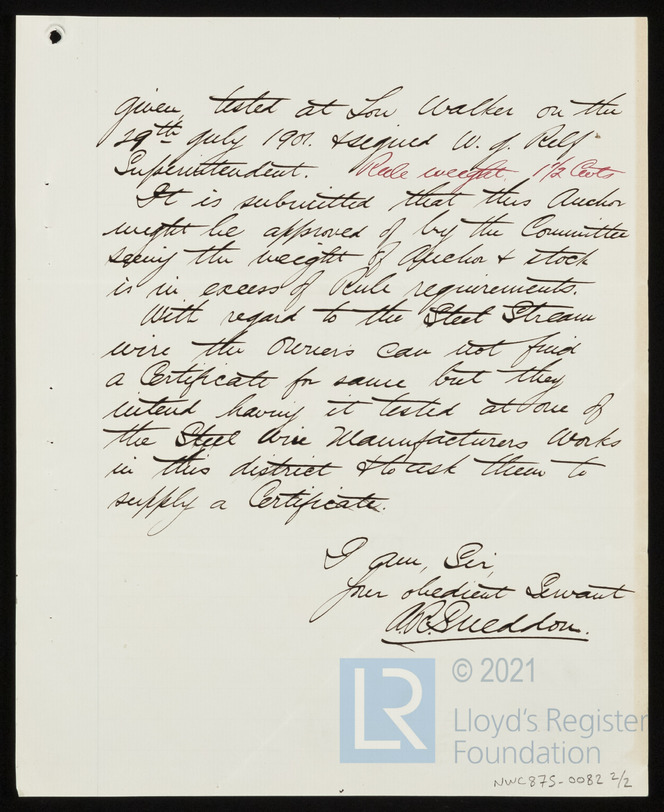 given, tested at Low Walker on the
29th July 1901. & signed W. J. Relf
Superintendent. Rule weight. 1½ Cwts
It is submitted that this Anchor
might be approved of by the Committee
seeing the weight of Anchor & stock
is in excess of Rule requirements.
With regard to the Steel Stream
wire the Owners can not find
a Certificate for same but they
intend having it tested at one of
the Steel Wire Manufacturers Works
in this district & to ask them to
supply a Certificate.
I am, Sir,
Your obedient Servant
Sneddon.
LR
© 2021
Lloyd's Register
Foundation
NWC875-0082 2/2